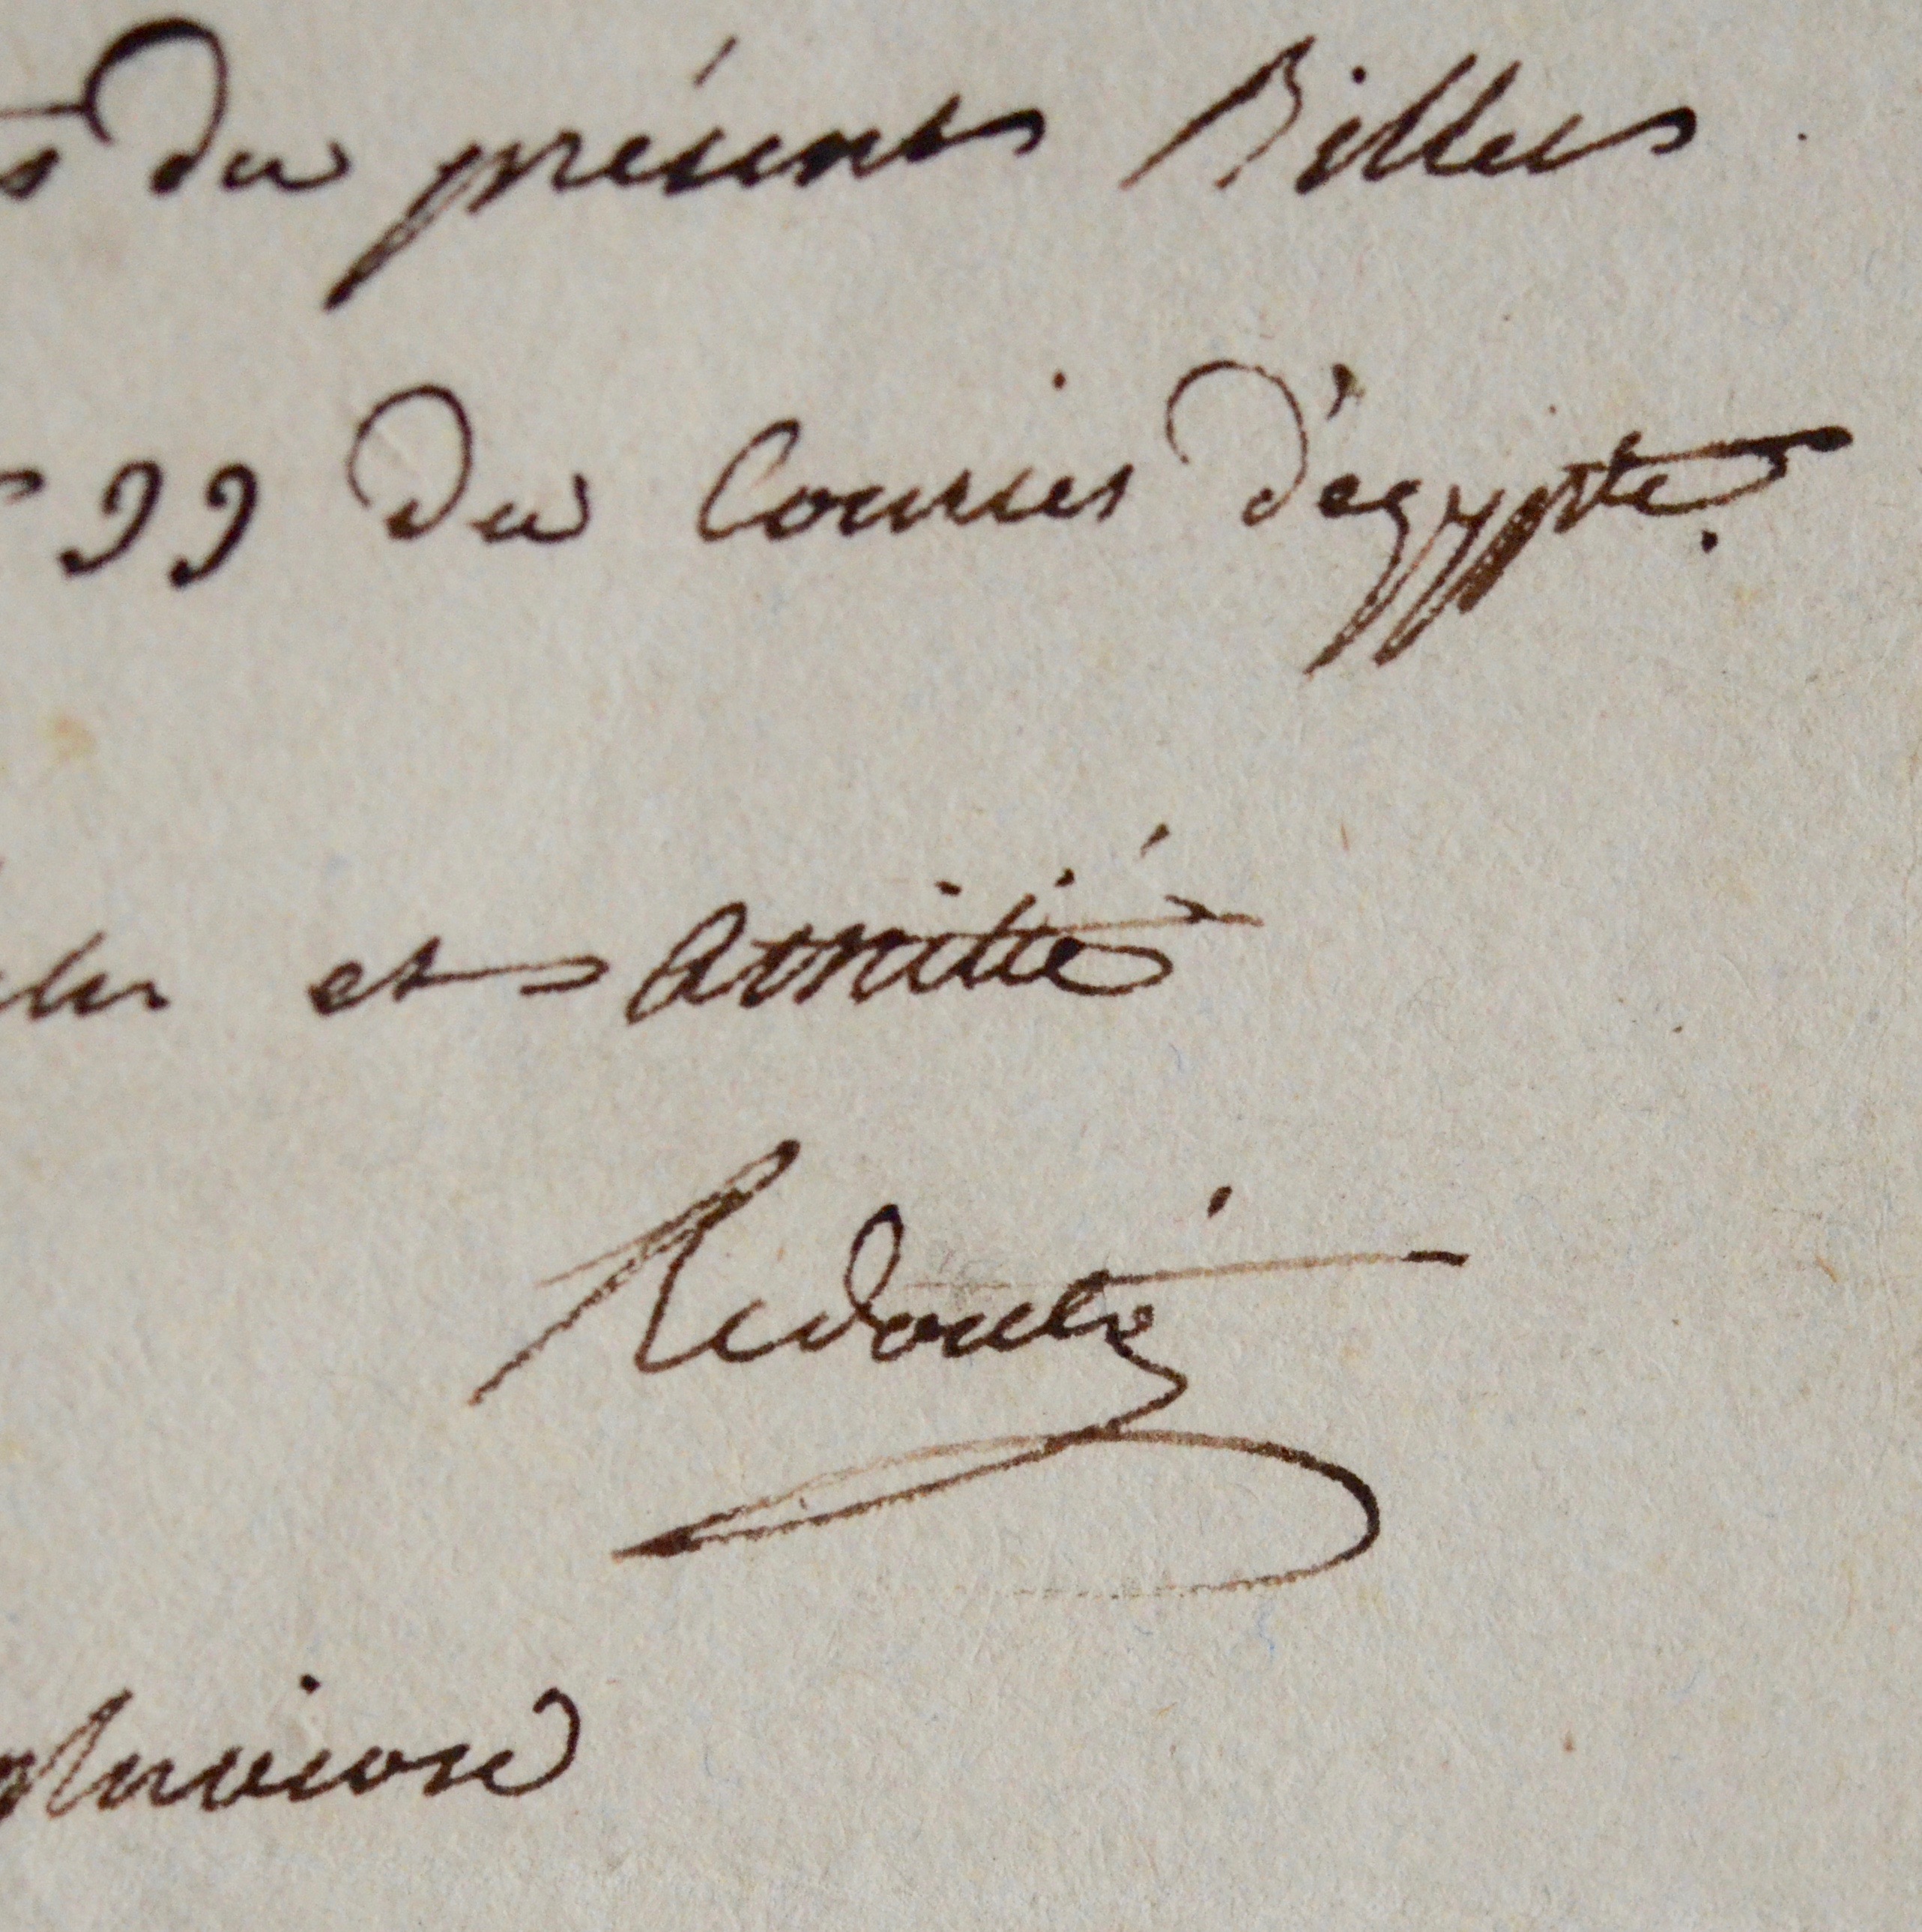 du présent Billet
99 du Courier d'égypte.
et amitié
Redouté
pluviose